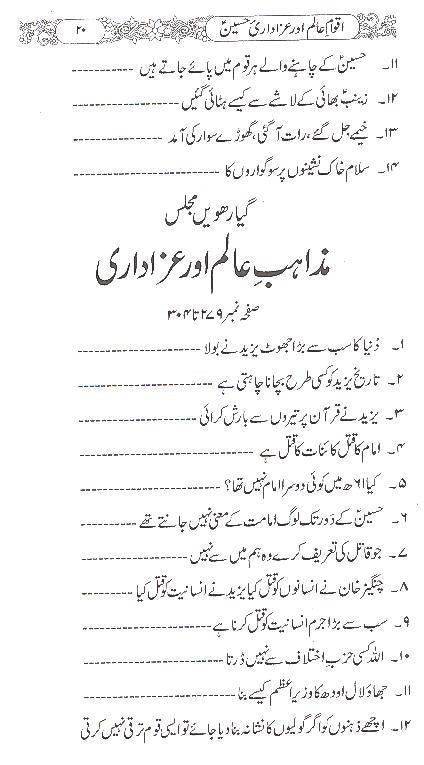 اقوامِ عالم اور عزاداریِ حسینؑ ۲۰
۱۱۔ حسینؑ کے چاہنے والے ہر قوم میں پائے جاتے ہیں
۱۲۔ زینبؑ بھائی کے لاشے سے کیسے ہٹائی گئیں ------------
۱۳۔ خیمے جل گئے، رات آ گئی، گھوڑے سوار کی آمد ------------
۱۴۔ سلام خاک نشینوں پر سوگواروں کا ------------
گیارھویں مجلس
مذاہبِ عالم اور عزاداری
صفحہ نمبر ۲۷۹ تا ۳۰۴
۱۔ دُنیا کا سب سے بڑا جھوٹ یزید نے بولا ------------
۲۔ تاریخ یزید کو کسی طرح بچانا چاہتی ہے ------------
۳۔ یزید نے قرآن پر تیروں سے بارش کرائی ------------
۴۔ امام کا قتل کائنات کا قتل ہے ------------
۵۔ کیا ۶۱ھ میں کوئی دوسرا امام نہیں تھا؟ ------------
۶۔ حسینؑ کے دَور تک لوگ امامت کے معنی نہیں جانتے تھے ------------
۷۔ جو قاتل کی تعریف کرے وہ ہم میں سے نہیں ------------
۸۔ چنگیز خان نے انسانوں کو قتل کیا یزید نے انسانیت کو قتل کیا ------------
۹۔ سب سے بڑا جرم انسانیت کو قتل کرنا ہے ------------
۱۰۔ اللہ کسی حزبِ اختلاف سے نہیں ڈرتا ------------
۱۱۔ جھاؤ لال اودھ کا وزیرِ اعظم کیسے بنا ------------
۱۲۔ اچھے ذہنوں کو اگر گولیوں کا نشانہ بنا دیا جائے تو ایسی قوم ترقی نہیں کرتی